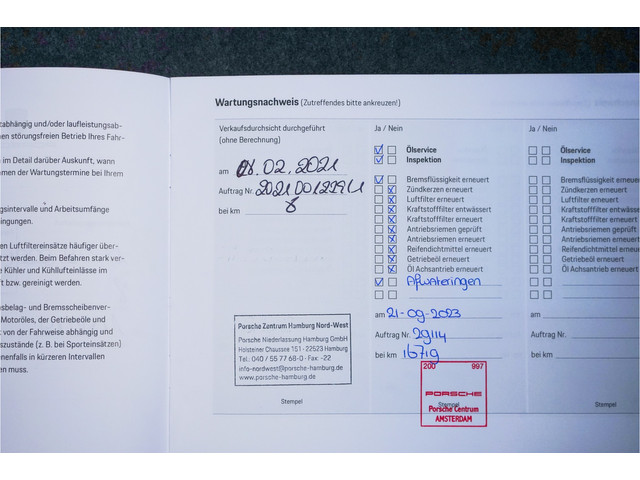 tabhängig und/oder laufleistungsab-
en störungsfreien Betrieb Ihres Fahr-
im Detail darüber Auskunft, wann
men der Wartungstermine bei Ihrem
gsintervalle und Arbeitsumfänge
ingungen.
en Luftfiltereinsätze häufiger über-
tzt werden. Beim Befahren stark ver-
e Kühler und Kühllufteinlässe im
ft bzw. gereinigt werden.
nsbelag- und Bremsscheibenver-
Motoröles, der Getriebeöle und
t von der Fahrweise abhängig und
zustände (z. B. bei Sporteinsätzen)
enenfalls in kürzeren Intervallen
en muss.
Wartungsnachweis (Zutreffendes bitte ankreuzen!)
Verkaufsdurchsicht durchgeführt
(ohne Berechnung)
am 08.02.2021
Auftrag Nr.
bei km 8
Porsche Zentrum Hamburg Nord-West
Porsche Niederlassung Hamburg GmbH
Holsteiner Chaussee 151 - 22523 Hamburg
Tel.: 040 / 55 77 68-0 - Fax: -22
info-nordwest@porsche-hamburg.de
www.porsche-hamburg.de
Stempel
Ja / Nein
Ölservice
Inspektion
Bremsflüssigkeit erneuert
Zündkerzen erneuert
Luftfilter erneuert
Kraftstofffilter entwässert
Kraftstofffilter erneuert
Antriebsriemen geprüft
Antriebsriemen erneuert
Reifendichtmittel erneuert
Getriebeöl erneuert
Öl Achsantrieb erneuert
Afwateringen
am 21-09-2023
Auftrag Nr. 29114
bei km 16719
200 997
PORSCHE
Stempel
Porsche Centrum
AMSTERDAM
Ja / Nein
Ölservice
Inspektion
Bremsflüssigkeit erneuert
Zündkerzen erneuert
Luftfilter erneuert
Kraftstofffilter entw
Kraftstofffilter erneu
Antriebsriemen gepr
Antriebsriemen erne
Reifendichtmittel ern
Getriebeöl erneuert
Öl Achsantrieb erneu
am
Auftrag Nr.
bei km
Stempel